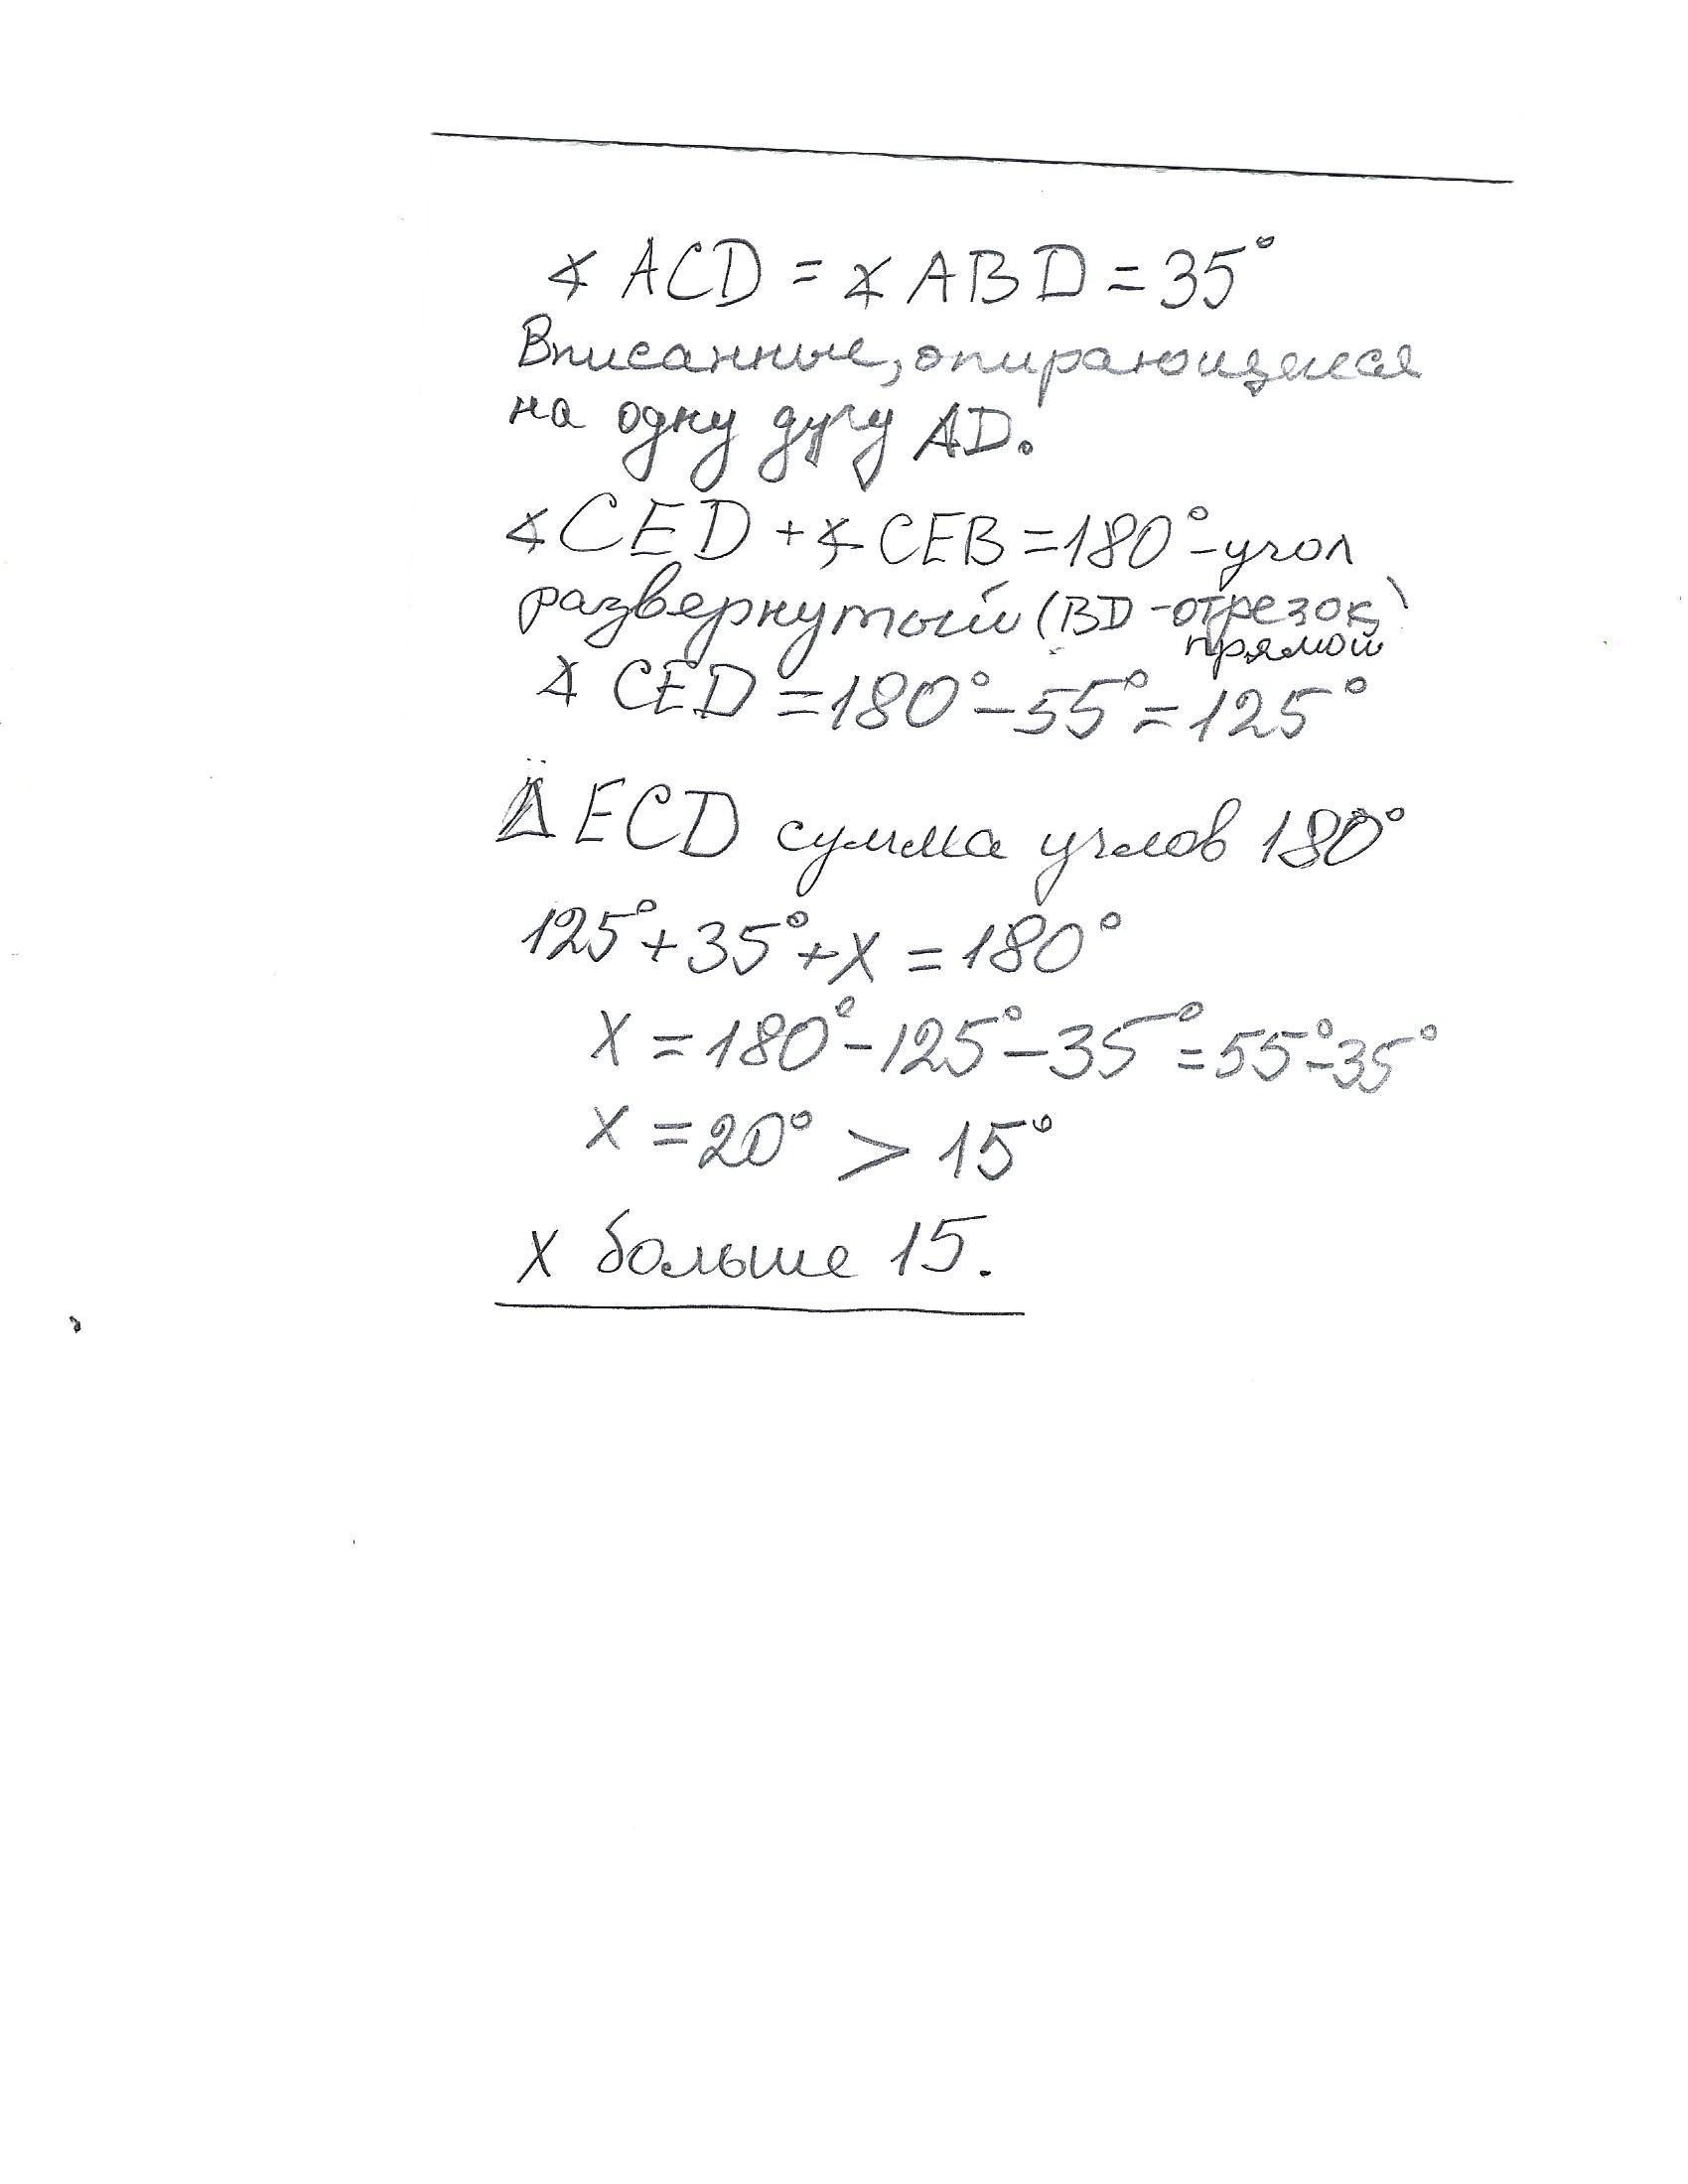 ∢ ACD = ∢ ABD = 35°
Вписанные, опирающиеся
на одну дугу AD.
∢ CED + ∢ CEB = 180° - угол
развернутый (BD - отрезок
прямой)
∢ CED = 180° - 55° = 125°
Δ ECD сумма углов 180°
125° + 35° + x = 180°
x = 180° - 125° - 35° = 55° - 35°
x = 20° > 15°
x больше 15.